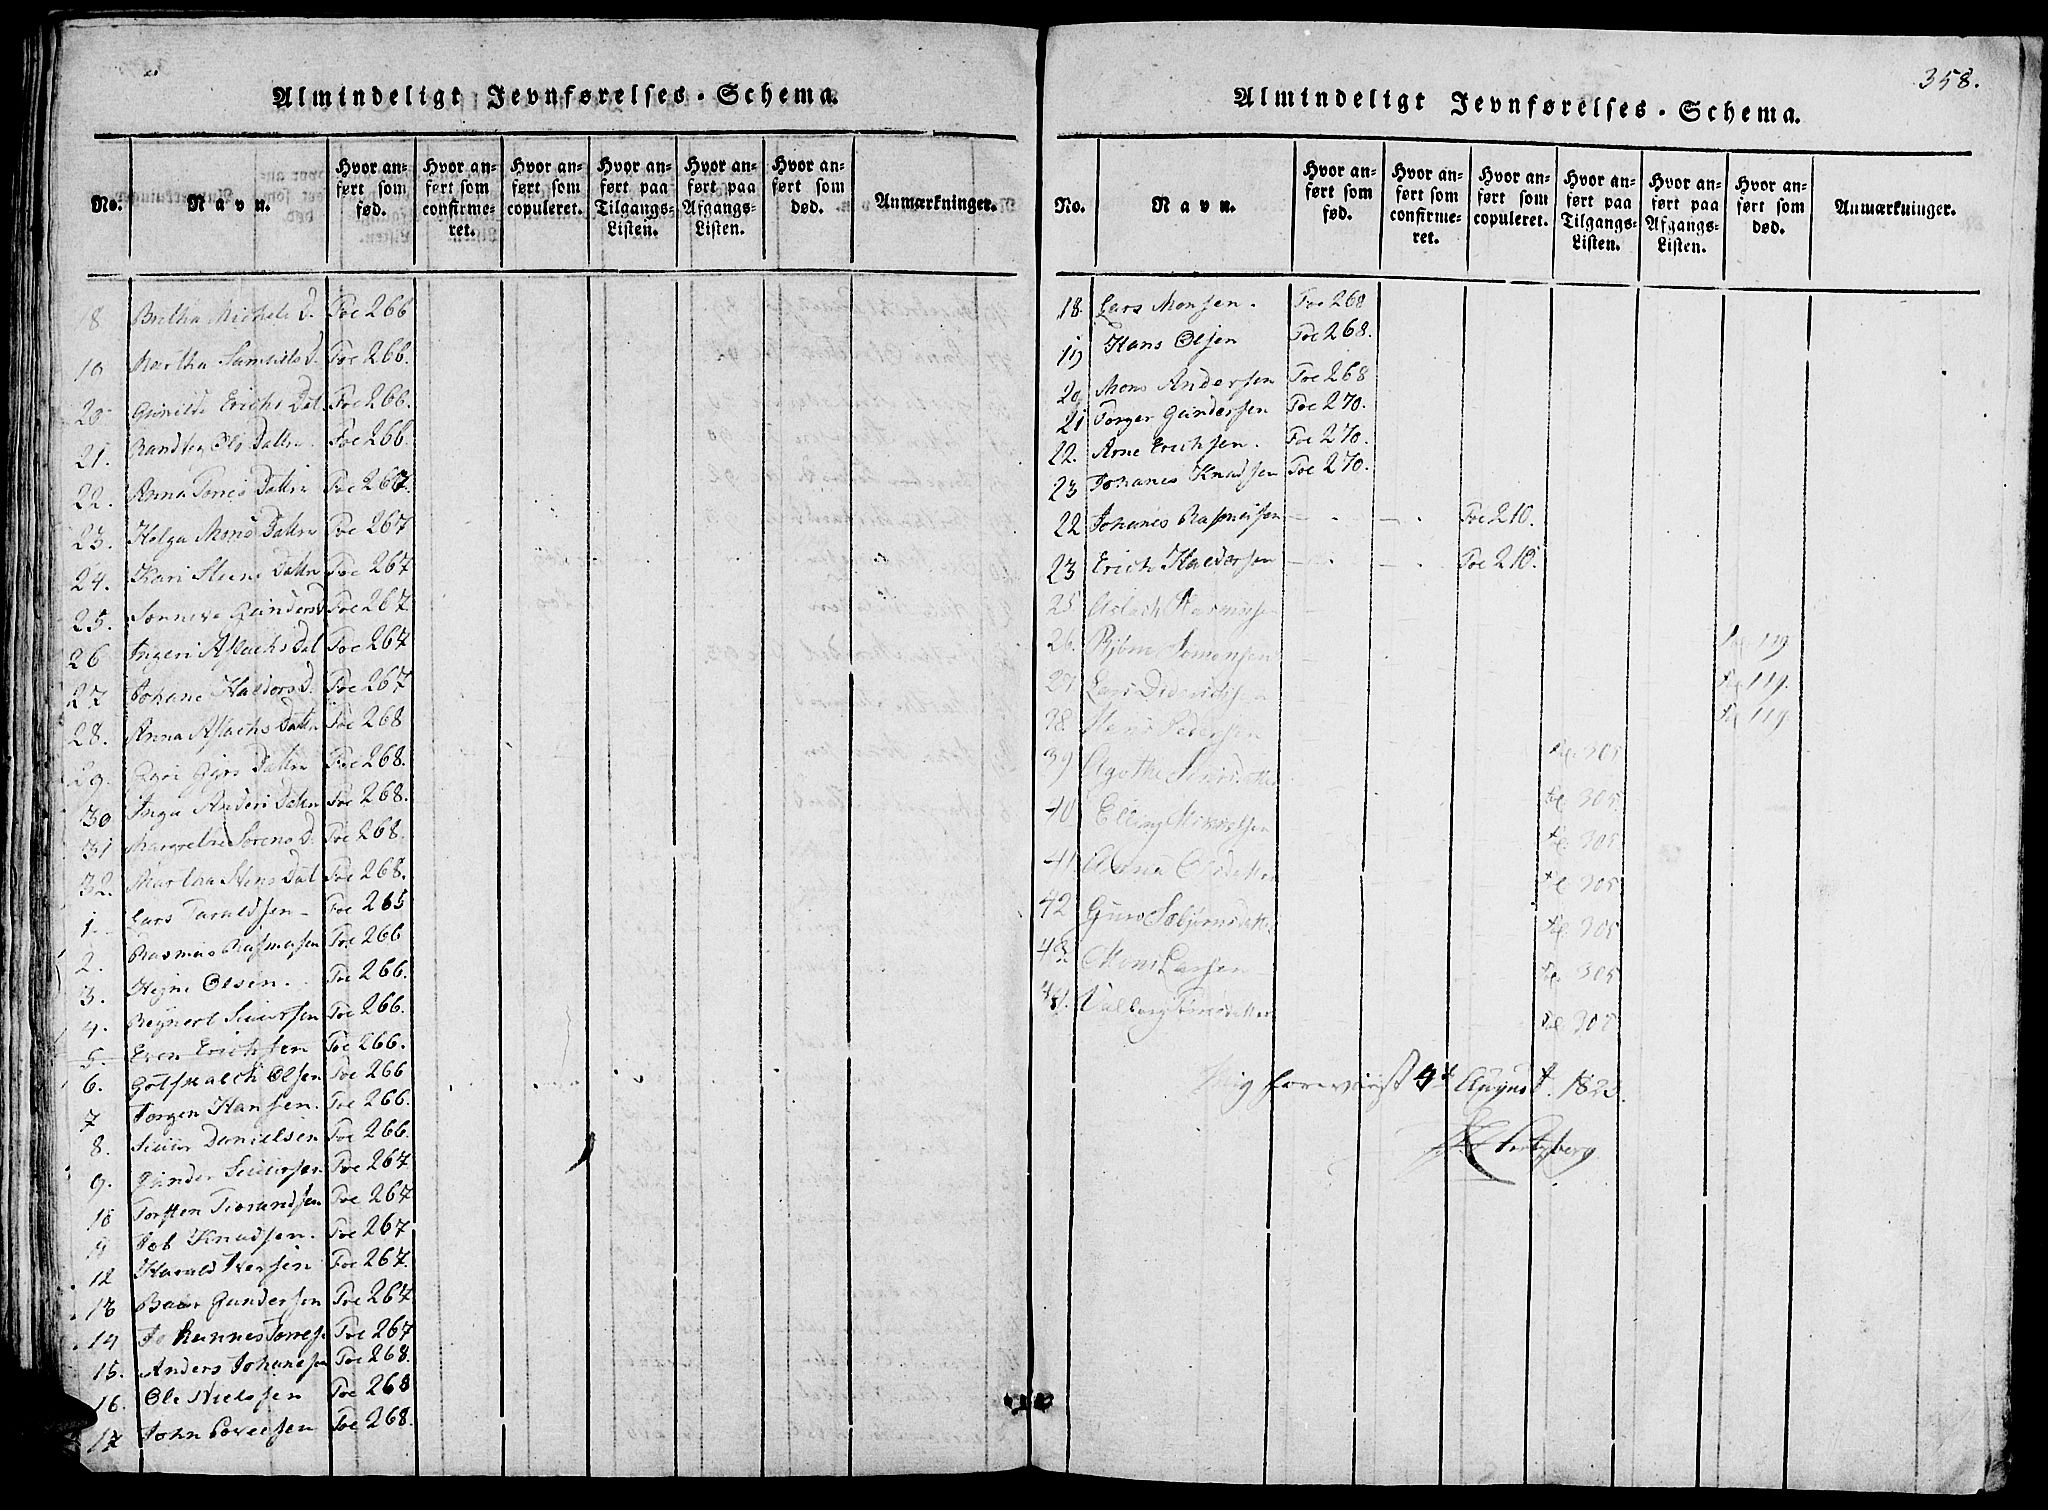 Almindeligt Jevnførelses-Schema.
No.
Navn.
Hvor anført som fød.
Hvor anført som confirmeret.
Hvor anført som copuleret.
Hvor anført paa Tilgangs-Listen.
Hvor anført paa Afgangs-Listen.
Hvor anført som død.
Anmærkninger.
18 Britha Michels D. Foe 266
19 Martha Samuels D. Foe 266.
20 Gunilde Erichs Dat. Foe 266.
21. Randveg Ols Dattr. Foe 266
22. Anna Torres Dattr Foe 267.
23. Helga Mons Dattr Foe 267
24. Kari Steens Dattr Foe 267
25. Sønneva Gunders D Foe 267.
26 Ingeri Aslachs Dat Foe 267
27 Johane Haldors D. Foe 267
28. Anna Aslachs Dattr Foe 268
29. Dattr Foe 268.
30 Inga Anders Datter Foe 268.
31 Margrethe Sørens D. Foe 268.
32. Martha Stens Dat Foe 268.
1. Lars Taraldsen Foe 265
2. Rasmus Rasmusen Foe 266
3. Olsen. Foe 266.
4. Reynert Siursen Foe 266.
5. Even Erichsen Foe 266.
6. Gotskalch Olsen Foe 266
7 Jørgen Hansen. Foe 266.
8. Siur Danielsen Foe 266.
9. Gunder Siursen Foe 267
10 Torsten Foe 267
9 Job Knudsen. Foe 267
12 Harald Iversen Foe 267.
13 Gundersen Foe 267
14 Johannes Torres. Foe 267
15. Anders Johanesen Foe 268.
16. Ole Nielssen Foe 268
17 John Foe 268.
358.
Almindeligt Jevnførelses-Schema.
No.
Navn.
Hvor anført som fød.
Hvor anført som confirmeret.
Hvor anført som copuleret.
Hvor anført paa Tilgangs-Listen.
Hvor anført paa Afgangs-Listen.
Hvor anført som død.
Anmærkninger.
18. Lars Monsen. Foe 268
19 Hans Olsen Foe 268.
20 Mons Andersen Foe 268
21 Torger Gundersen Foe 270.
22. Arne Erichsen. Foe 270.
23 Johanes Knudsen Foe 270.
22 Johanes Rasmusen Foe 210.
23 Erich Haldorsen Foe 210.
25 Aslach Rasmusen
26. Bjørn Simonsen Fol 119
27. Lars Didrichsen Fol 119.
38. Pedersen Fol 119
39 Agathe Fol. 305
40 Elling Fol. 305
41. Anna Olsdatter Fol. 305
42 Guro Fol. 305
43. Mons Larsen Fol. 305
44. Valborg Fol. 305
Mig foreviist 4d August. 1823.